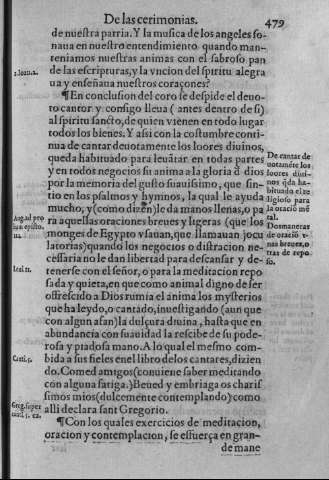 De las cerimonias.
479
de nuestra patria. Y la musica de los angeles so-
naua en nuestro entendimiento quando man-
teniamos nuestras animas con el sabroso pan
de las escripturas, y la vncion del spiritu alegra
ua y enseñaua nuestros coraçones?
¶En conclusion del coro se despide el deuo-
to cantor y consigo lleua (antes dentro de si)
al spiritu sancto, de quien vienen en todo lugar
todos los bienes. Y assi con la costumbre conti-
nua de cantar deuotamente los loores diuinos,
queda habituado para leuãtar en todas partes
y en todos negocios su anima a la gloria đ dios
por la memoria del gusto suauissimo, que sin-
tio en los psalmos y hymnos, la qual le ayuda
mucho, y (como dizen) le da manos llenas, o pa
ra aquessas oraciones breues y ligeras (que los
monges de Egypto vsauan, que llamauan jocu
latorias) quando los negocios o distracion ne-
cessaria no le dan libertad para descansar y de-
tenerse con el señor, o para la meditacion repo
sada y quieta, en que como animal digno de ser
offrescido a Dios rumia el anima los mysterios
que ha leydo, o cantado, inuestigando (aun que
con algun afan) la dulçura diuina, hasta que en
abundancia con suauidad la rescibe de su pode-
rosa y piadosa mano. A lo qual el mesmo com-
bida a sus fieles en el libro de los cantares, dizien
do. Comed amigos (conuiene saber meditando
con alguna fatiga.) Beued y embriaga os chariss
simos mios (dulcemente contemplando) como
alli declara sant Gregorio.
¶Con los quales exercicios de meditacion,
oracion y contemplacion, se esfuerça en gran-
de mane
1. Ioan. 2.
Aug. ad pro
bam episto.
Leui. 11.
Canti. 5.
Greg. super
De cantar de
uotamẽte los
loores diui-
nos q̃da ha-
bituado el re
ligioso para
la oracio mẽ
tal.
Dos maneras
de oració v-
nas breues, o
tras de repo
so.